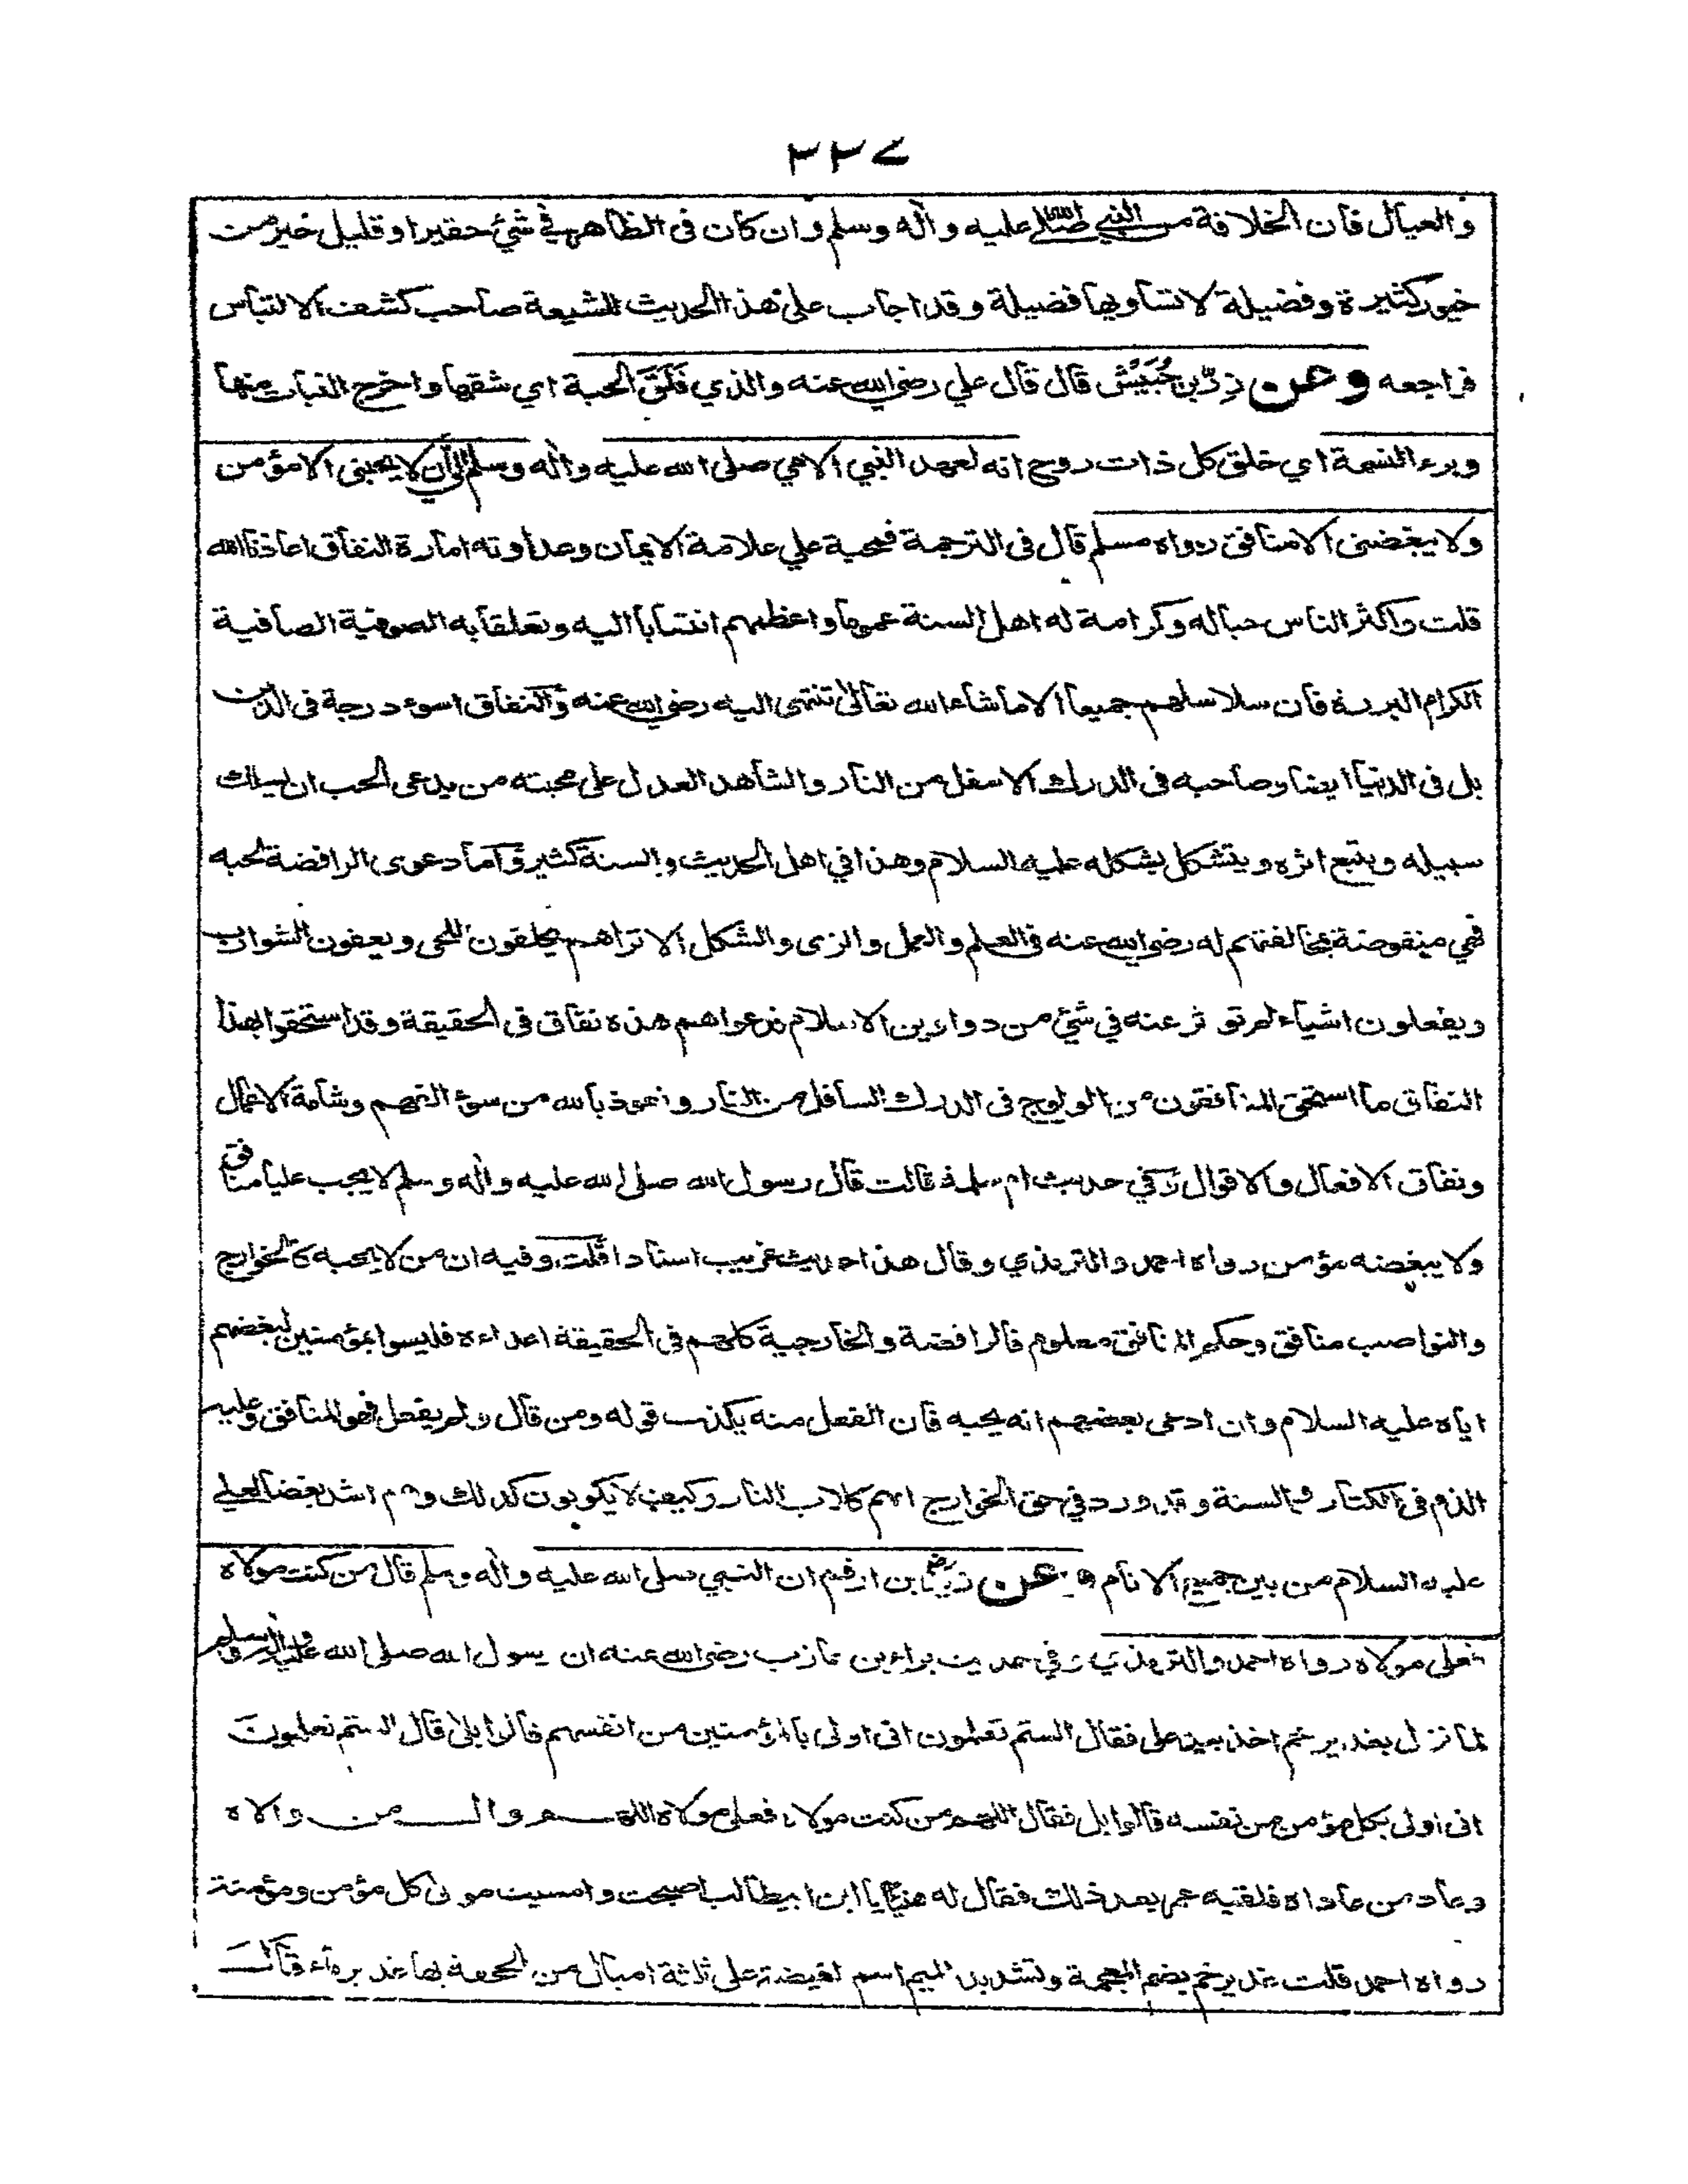 ٢٢٧
والعيال فان الخلافة من النبي صلى الله عليه واله وسلم وان كان فى الظاهر في شئ حقير او قليل خير من
خيور كثيرة وفضيلة لا تساويها فضيلة وقد اجاب على هذا الحديث للشيعة صاحب كشف الالتباس
فراجعه وعن زِرّ بن حُبَيْش قال قال علي رضي الله عنه والذي فَلَقَ الحبة اي شقها واخرج النبات منها
وبرء النسمة اي خلق كل ذات روح انه لعهد النبي الامي صلى الله عليه واله وسلم الي ان لا يحبنى الا مؤمن
ولا يبغضنى الا منافق رواه مسلم قال فى الترجمة فمحبة علي علامة الايمان وعداوته امارة النفاق اعاذنا الله
قلت واكثر الناس حبا له وكرامة له اهل السنة عموما واعظمهم انتسابا اليه وتعلقا به الصوفية الصافية
الكرام البررة فان سلاسلهم جميعا الا ما شاء الله تعالى تنتمى اليه رضي الله عنه والنفاق اسوء درجة فى الدين
بل فى الدنيا ايضا وصاحبه فى الدرك الاسفل من النار والشاهد العدل على محبته من يدعى الحب ان يسلك
سبيله ويتبع اثره ويتشكل بشكله عليه السلام وهذا في اهل الحديث والسنة كثير واما دعوى الرافضة لحبه
فهي منقوضة بمخالفتهم له رضي الله عنه في العلم والعمل والزى والشكل الا تراهم يحلقون اللحى ويعفون الشوارب
ويفعلون اشياء لم تو ثر عنه في شئ من دواوين الاسلام فدعواهم هذه نفاق في الحقيقة وقد استحقوا بهذا
النفاق ما استحق المنافقون من الولوج فى الدرك السافل من النار ونعوذ بالله من سوء الفهم وشامة الاعمال
ونفاق الافعال والاقوال وفي حديث ام سلمة قالت قال رسول الله صلى الله عليه واله وسلم لا يحب عليا منافق
ولا يبغضه مؤمن رواه احمد والترمذي وقال هذا حديث غريب اسنادا قلت وفيه ان من لا يحبه كالخوارج
والنواصب منافق وحكم المنافق معلوم فالرافضة والخارجية كلهم في الحقيقة اعداءه فليسوا بمؤمنين لبغضهم
اياه عليه السلام وان ادعى بعضهم انه يحبه فان الفعل منه يكذب قوله ومن قال ولم يفعل فهو المنافق وعليه
الذم فى الكتاب والسنة وقد ورد في حق الخوارج انهم كلاب النار وكيف لا يكونون كذلك وهم اشد بغضا لعلي
عليه السلام من بين جميع الانام وعن زيد رض بن ارقم ان النبي صلى الله عليه واله وسلم قال من كنت مولاه
فعلى مولاه رواه احمد والترمذي وفي حديث براء بن عازب رضي الله عنه ان رسول الله صلى الله عليه واله وسلم
لما نزل بغدير خم اخذ بيد على فقال الستم تعلمون انى اولى بالمؤمنين من انفسهم قالوا بلى قال الستم تعلمون
انى اولى بكل مؤمن من نفسه قالوا بلى فقال اللهم من كنت مولاه فعلى مولاه اللهم وال من والاه
وعاد من عاداه فلقيه عمر بعد ذلك فقال له هنيئا يا ابن ابيطالب اصبحت وامسيت مولى كل مؤمن ومؤمنة
رواه احمد قلت غدير خم بضم المعجمة وتشديد الميم اسم لغيضة على ثلاثة اميال من الجحفة بها غدير ماء